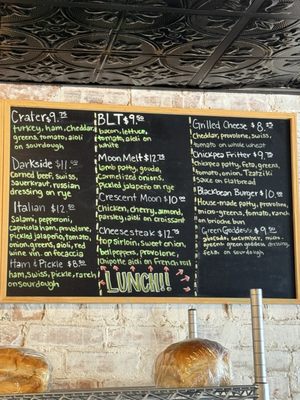 Craters $9.75
turkey, ham, cheddar
greens, tomato, aioli
on sourdough
Darkside $11.50
Corned beef, Swiss,
sauerkraut, russian
dressing on rye
Italian $12.50
Salami, pepperoni,
capricola ham, provolone,
pickled jalapeño, tomato,
onion, greens, aioli, red
wine vin. on focaccia
Ham & Pickle $8.50
ham, swiss, pickle, ranch
on sourdough
BLT $9.50
bacon, lettuce,
tomato, aioli on
white
Moon Melt $12.75
lamb patty, gouda,
Carmelized onions,
pickled jalapeño on rye
Crescent Moon $10.00
Chicken, cherry, almond,
parsley, aioli on croissant
Cheesesteak $12.75
top sirloin, sweet onion,
bell peppers, provolone,
Chipotle aioli on French roll
LUNCH!!
Grilled Cheese $8.75
Cheddar, provolone, swiss,
tomato on whole wheat
Chickpea Fritter $9.75
Chickpea patty, feta, greens,
tomato, onion, Tzatziki
sauce on flatbread
Blackbean Burger $10.50
House patty, provolone,
onion, greens, tomato, ranch
on brioche bun
Green Goddess $9.50
avocado, cucumber, onion,
green goddess dressing,
feta on sourdough